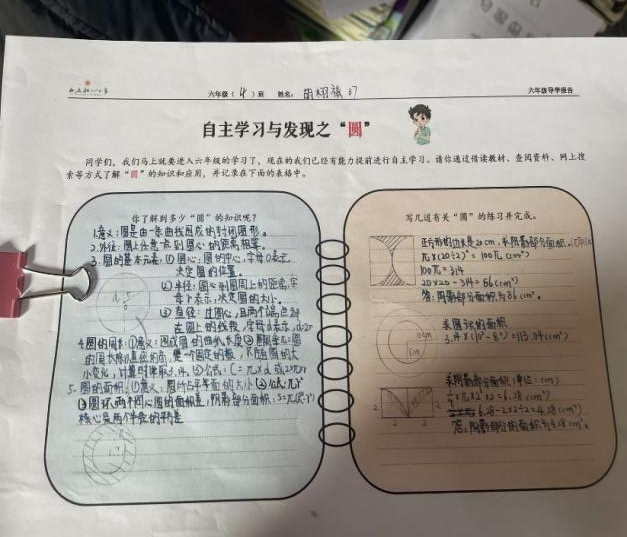 六年级（4）班 姓名：
六年级导学报告
自主学习与发现之“圆”
同学们，我们马上就要进入六年级的学习了，现在的我们已经有能力提前进行自主学习。请你通过借读教材、查阅资料、网上搜
索等方式了解“圆”的知识和应用，并记录在下面的表格中。
你了解到多少“圆”的知识呢？
1.意义：圆是由一条曲线围成的封闭图形。
2.外征：圆上任意一点到圆心的距离相等。
3.圆的基本元素：①圆心：圆的中心，字母O表示，
决定圆的位置。
②半径：圆心到圆周上的距离，字
母r表示，决定圆的大小。
③直径：过圆心，且两个端点都
在圆上的线段，字母d表示，d=2r
4.圆的周长：①意义：围成圆的曲线长度②圆周率π：圆
的周长除以直径的商，是一个固定的数，
小变化，计算时常取3.14。③公式：C=πxd或2πr
5.圆的面积：①意义：圆所占平面的大小②公式：πr²
③圆环：两个同心圆的面积差，阴影部分面积：S=π(R²-r²)
核心是两个半径的平方差
写几道有关“圆”的练习并完成。
正方形的边长是20cm，求阴影部分面积。
πx(20÷2)²=100π(cm²)
100π=314
20x20-314=86(cm²)
答：阴影部分面积为86cm²。
求圆环的面积
3.14x(10²-8²)=113.04(cm²)
10cm
8cm
求阴影部分面积（单位：cm）
6.28-2x2÷2=4.28(cm²)
答：阴影部分的面积为4.28cm²。
2
2
2 2